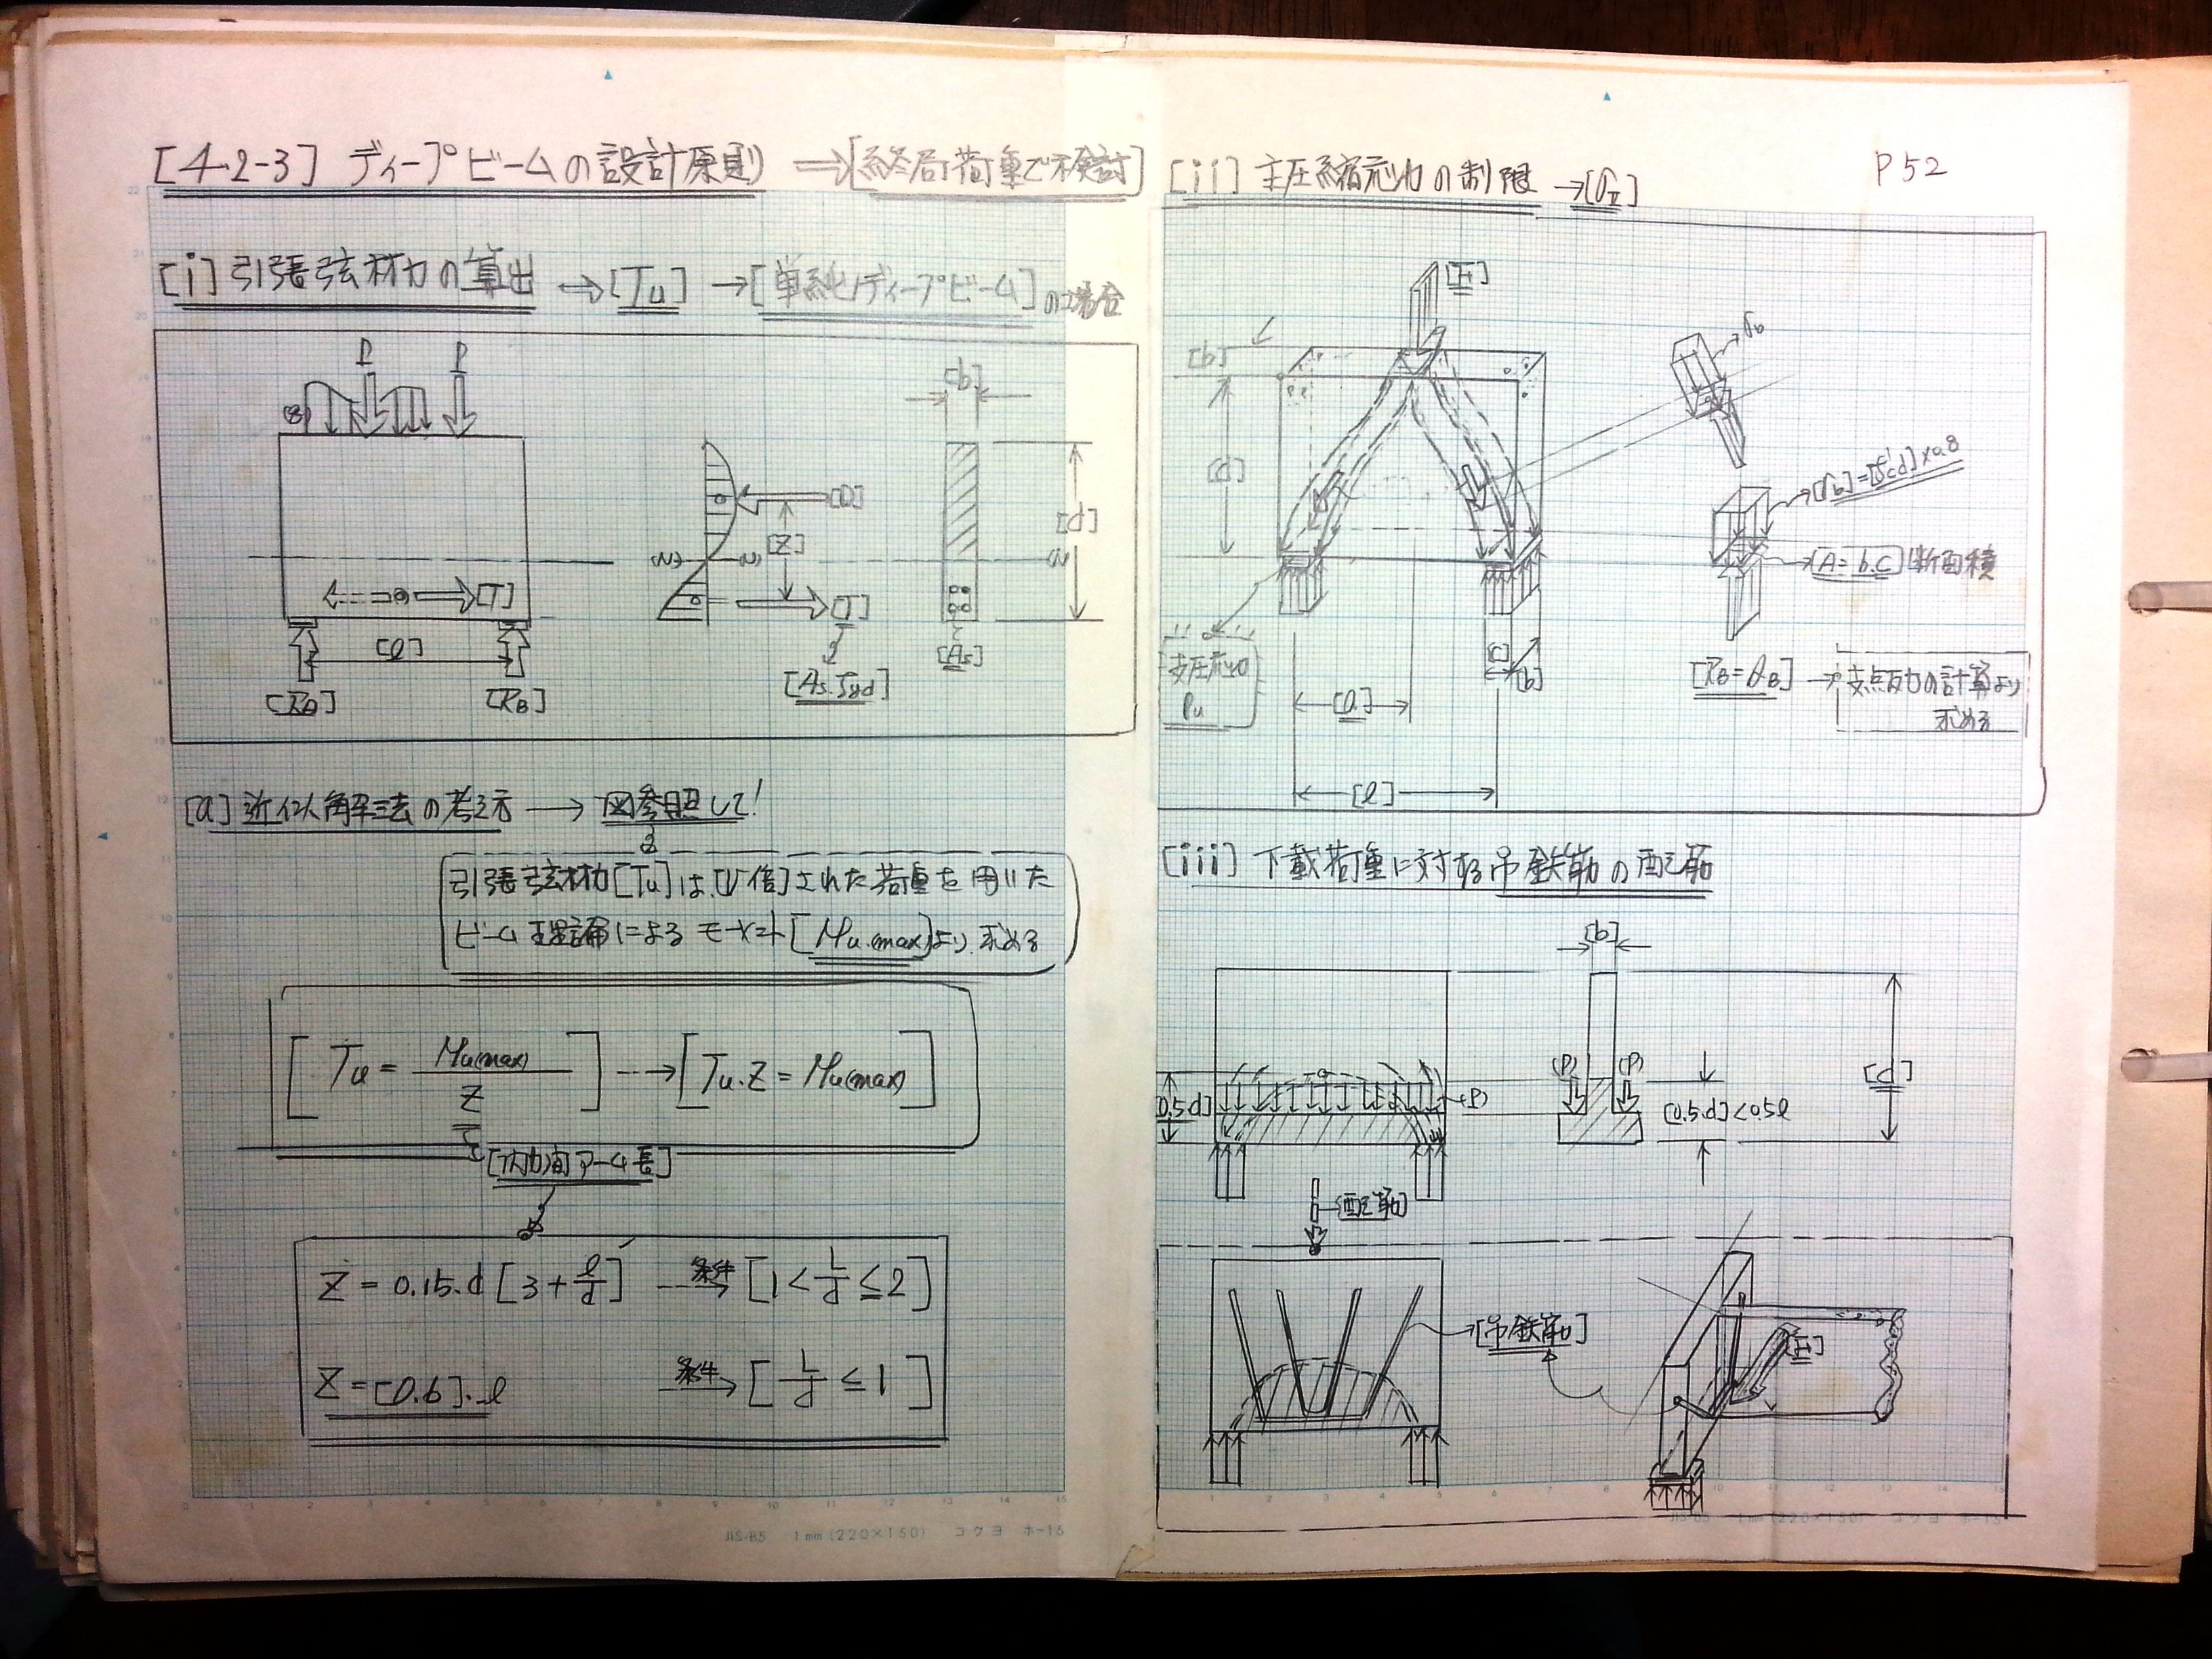 [4-2-3] ディープビームの設計原則 ⇒ [終局荷重で検討]
[i] 引張弦材力の算出 → [Tu] → [単純ディープビーム]の場合
P
P
[b]
[D]
[Z]
[d]
(N) (N)
[T]
[T]
[l]
[As]
[As.fyd]
[RA]
[RB]
[a] 近似解法の考え方 → 図参照して!
引張弦材力[Tu]は、[ν倍]された荷重を用いた
ビーム理論によるモーメント[Mu.(max)]より求める
[Tu = Mu(max) / Z] → [Tu.Z = Mu(max)]
[内力間アーム長]
Z = 0.15.d [3 + l/d] 条件→ [1 < l/d ≦ 2]
Z = [0.6].l 条件→ [l/d ≦ 1]
JIS-B5 1mm (220×150) コクヨ ホ-15
P52
[ii] 主圧縮応力の制限 → [σII]
[F]
[b]
[d]
σb
[σb] = [f'cd] × 0.8
[A = b.c] 断面積
支圧応力
Pu
[c]
[b]
[RB = AB] → 支点反力の計算より
求める
[a]
[l]
[iii] 下載荷重に対する吊鉄筋の配筋
[b]
(P) (P)
[d]
[0.5.d]
(P)
[0.5.d] < 0.5l
[配筋]
[吊鉄筋]
[F]
JIS-B5 1mm (220×150) コクヨ ホ-15